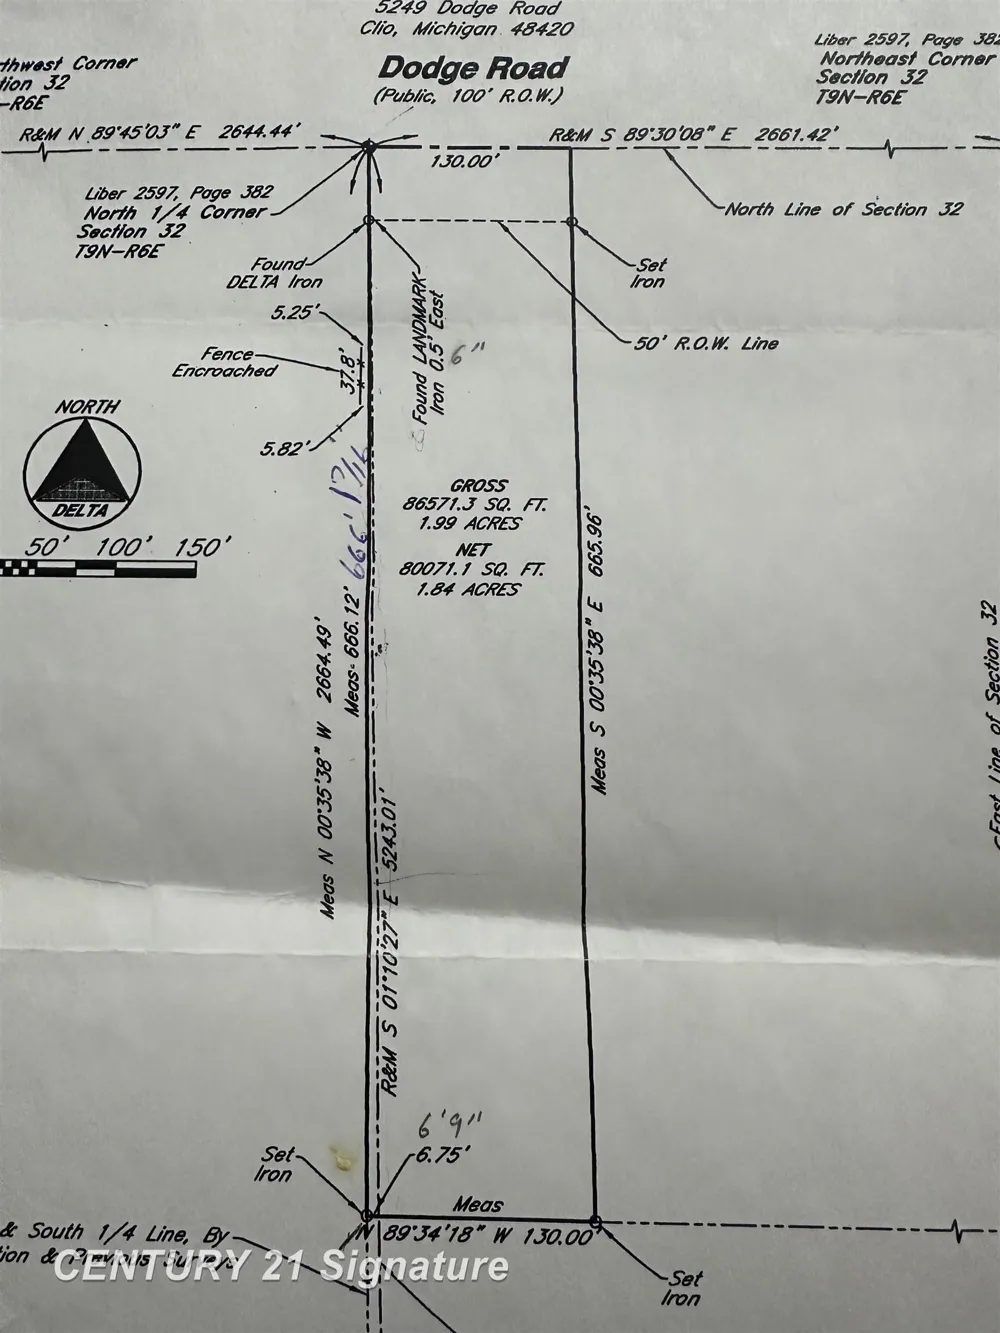 5249 Dodge Road
Clio, Michigan 48420
Dodge Road
(Public, 100' R.O.W.)
thwest Corner
tion 32
-R6E
Liber 2597, Page 382
Northeast Corner
Section 32
T9N-R6E
R&M N 89°45'03" E 2644.44'
130.00'
R&M S 89°30'08" E 2661.42'
Liber 2597, Page 382
North 1/4 Corner
Section 32
T9N-R6E
North Line of Section 32
Found
DELTA Iron
Set
Iron
Found LANDMARK
Iron 0.5' East
6"
5.25'
Fence
Encroached
37.8'
5.82'
50' R.O.W. Line
NORTH
DELTA
50' 100' 150'
GROSS
86571.3 SQ. FT.
1.99 ACRES
NET
80071.1 SQ. FT.
1.84 ACRES
666' 1 7/16
Meas 666.12'
Meas N 00°35'38" W 2664.49'
R&M S 01°10'27" E 5243.01'
Meas S 00°35'38" E 665.96'
East Line of Section 32
6'9"
6.75'
Set
Iron
Meas
N 89°34'18" W 130.00'
& South 1/4 Line, By
tion & Previous Surveys
Set
Iron
CENTURY 21 Signature